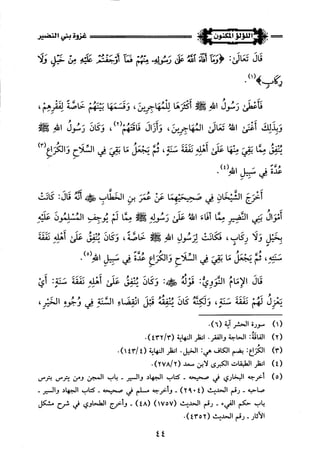 غزوة بني النضير
اللؤلؤ المكنون
قَالَ تَعَالَى: ﴿وَمَا أَفَاءَ اللَّهُ عَلَى رَسُولِهِ مِنْهُمْ فَمَا أَوْجَفْتُمْ عَلَيْهِ مِنْ خَيْلٍ وَلَا
رِكَابٍ﴾(١).
فَأَعْطَى رَسُولُ اللهِ ﷺ أَكْثَرَهَا لِلْمُهَاجِرِينَ، وَقَسَمَهَا بَيْنَهُمْ خَاصَّةً لِفَقْرِهِمْ،
وَبِذَلِكَ أَغْنَى اللهُ تَعَالَى الْمُهَاجِرِينَ، وَأَزَالَ فَاقَتَهُمْ(٢)، وَكَانَ رَسُولُ اللهِ ﷺ
يُنْفِقُ مِمَّا بَقِيَ مِنْهَا عَلَى أَهْلِهِ نَفَقَةَ سَنَةٍ، ثُمَّ يَجْعَلُ مَا بَقِيَ فِي السِّلَاحِ وَالْكُرَاعِ(٣)
عُدَّةً فِي سَبِيلِ اللهِ(٤).
أَخْرَجَ الشَّيْخَانِ فِي صَحِيحَيْهِمَا عَنْ عُمَرَ بْنِ الْخَطَّابِ ﷺ أَنَّهُ قَالَ: كَانَتْ
أَمْوَالُ بَنِي النَّضِيرِ مِمَّا أَفَاءَ اللهُ عَلَى رَسُولِهِ ﷺ مِمَّا لَمْ يُوجِفِ الْمُسْلِمُونَ عَلَيْهِ
بِخَيْلٍ وَلَا رِكَابٍ، فَكَانَتْ لِرَسُولِ اللهِ ﷺ خَاصَّةً، وَكَانَ يُنْفِقُ عَلَى أَهْلِهِ نَفَقَةَ
سَنَتِهِ، ثُمَّ يَجْعَلُ مَا بَقِيَ فِي السِّلَاحِ وَالْكُرَاعِ عُدَّةً فِي سَبِيلِ اللهِ(٥).
قَالَ الْإِمَامُ النَّوَوِيُّ: قَوْلُهُ: وَكَانَ يُنْفِقُ عَلَى أَهْلِهِ نَفَقَةَ سَنَةٍ: أَيْ
يَعْزِلُ لَهُمْ نَفَقَةَ سَنَةٍ، وَلَكِنَّهُ كَانَ يُنْفِقُهُ قَبْلَ انْقِضَاءِ السَّنَةِ فِي وُجُوهِ الْخَيْرِ،
(١) سورة الحشر آية (٦).
(٢) الفاقة: الحاجة والفقر. انظر النهاية (٤٣٢/٣).
(٣) الكُرَاع: بضم الكاف هي: الخيل. انظر النهاية (١٤٣/٤).
(٤) انظر الطبقات الكبرى لابن سعد (٢٧٨/٢).
(٥) أخرجه البخاري في صحيحه - كتاب الجهاد والسير - باب المجن ومن يترس بترس
صاحبه - رقم الحديث (٢٩٠٤) - وأخرجه مسلم في صحيحه - كتاب الجهاد والسير -
باب حكم الفيء - رقم الحديث (١٧٥٧) (٤٨) - وأخرج الطحاوي في شرح مشكل
الآثار - رقم الحديث (٤٣٥٢).
٤٤